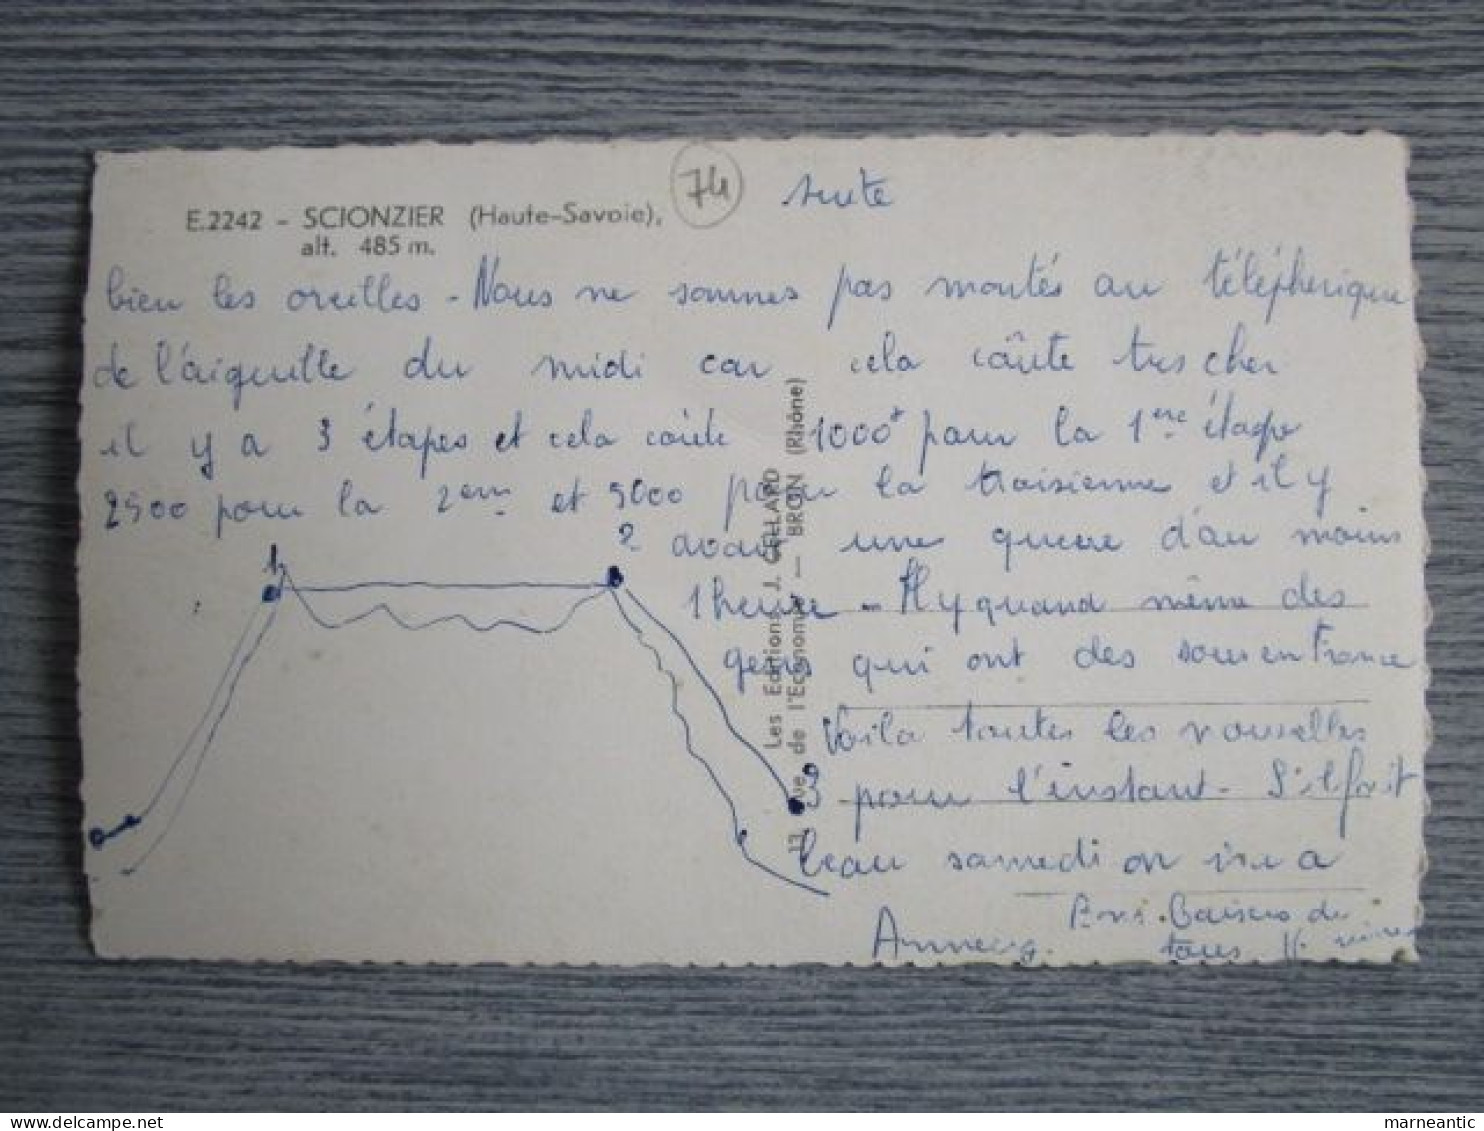 74
suite
E.2242 - SCIONZIER (Haute-Savoie),
alt. 485 m.
bien les oreilles - Nous ne sommes pas montés au téléphérique
de l'aiguille du midi car cela coûte tres cher
il y a 3 étapes et cela coûte 1000f pour la 1ere étape
2500 pour la 2em et 5000 pour la troisienne et il y
avait une queue d'au moins
1 heure - Il y quand même des
gens qui ont des sous en France
Voila toutes les nouvelles
pour l'instant - S'il fait
beau samedi on ira a
Annecy.
Bons Baisers de
tous
1
2
3
Les Editions J. CELLARD
13 rue de l'Economie — BRON (Rhône)
marneantic